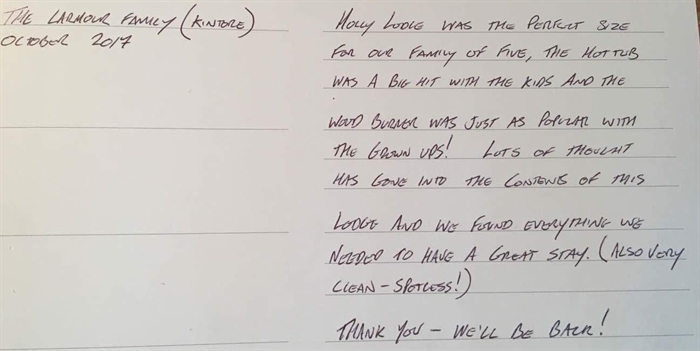 THE LARMOUR FAMILY (KINTORE)
OCTOBER 2017
HOLLY LODGE WAS THE PERFECT SIZE
FOR OUR FAMILY OF FIVE, THE HOT TUB
WAS A BIG HIT WITH THE KIDS AND THE
WOOD BURNER WAS JUST AS POPULAR WITH
THE GROWN UPS! LOTS OF THOUGHT
HAS GONE INTO THE CONTENTS OF THIS
LODGE AND WE FOUND EVERYTHING WE
NEEDED TO HAVE A GREAT STAY. (ALSO VERY
CLEAN - SPOTLESS!)
THANK YOU - WE'LL BE BACK!